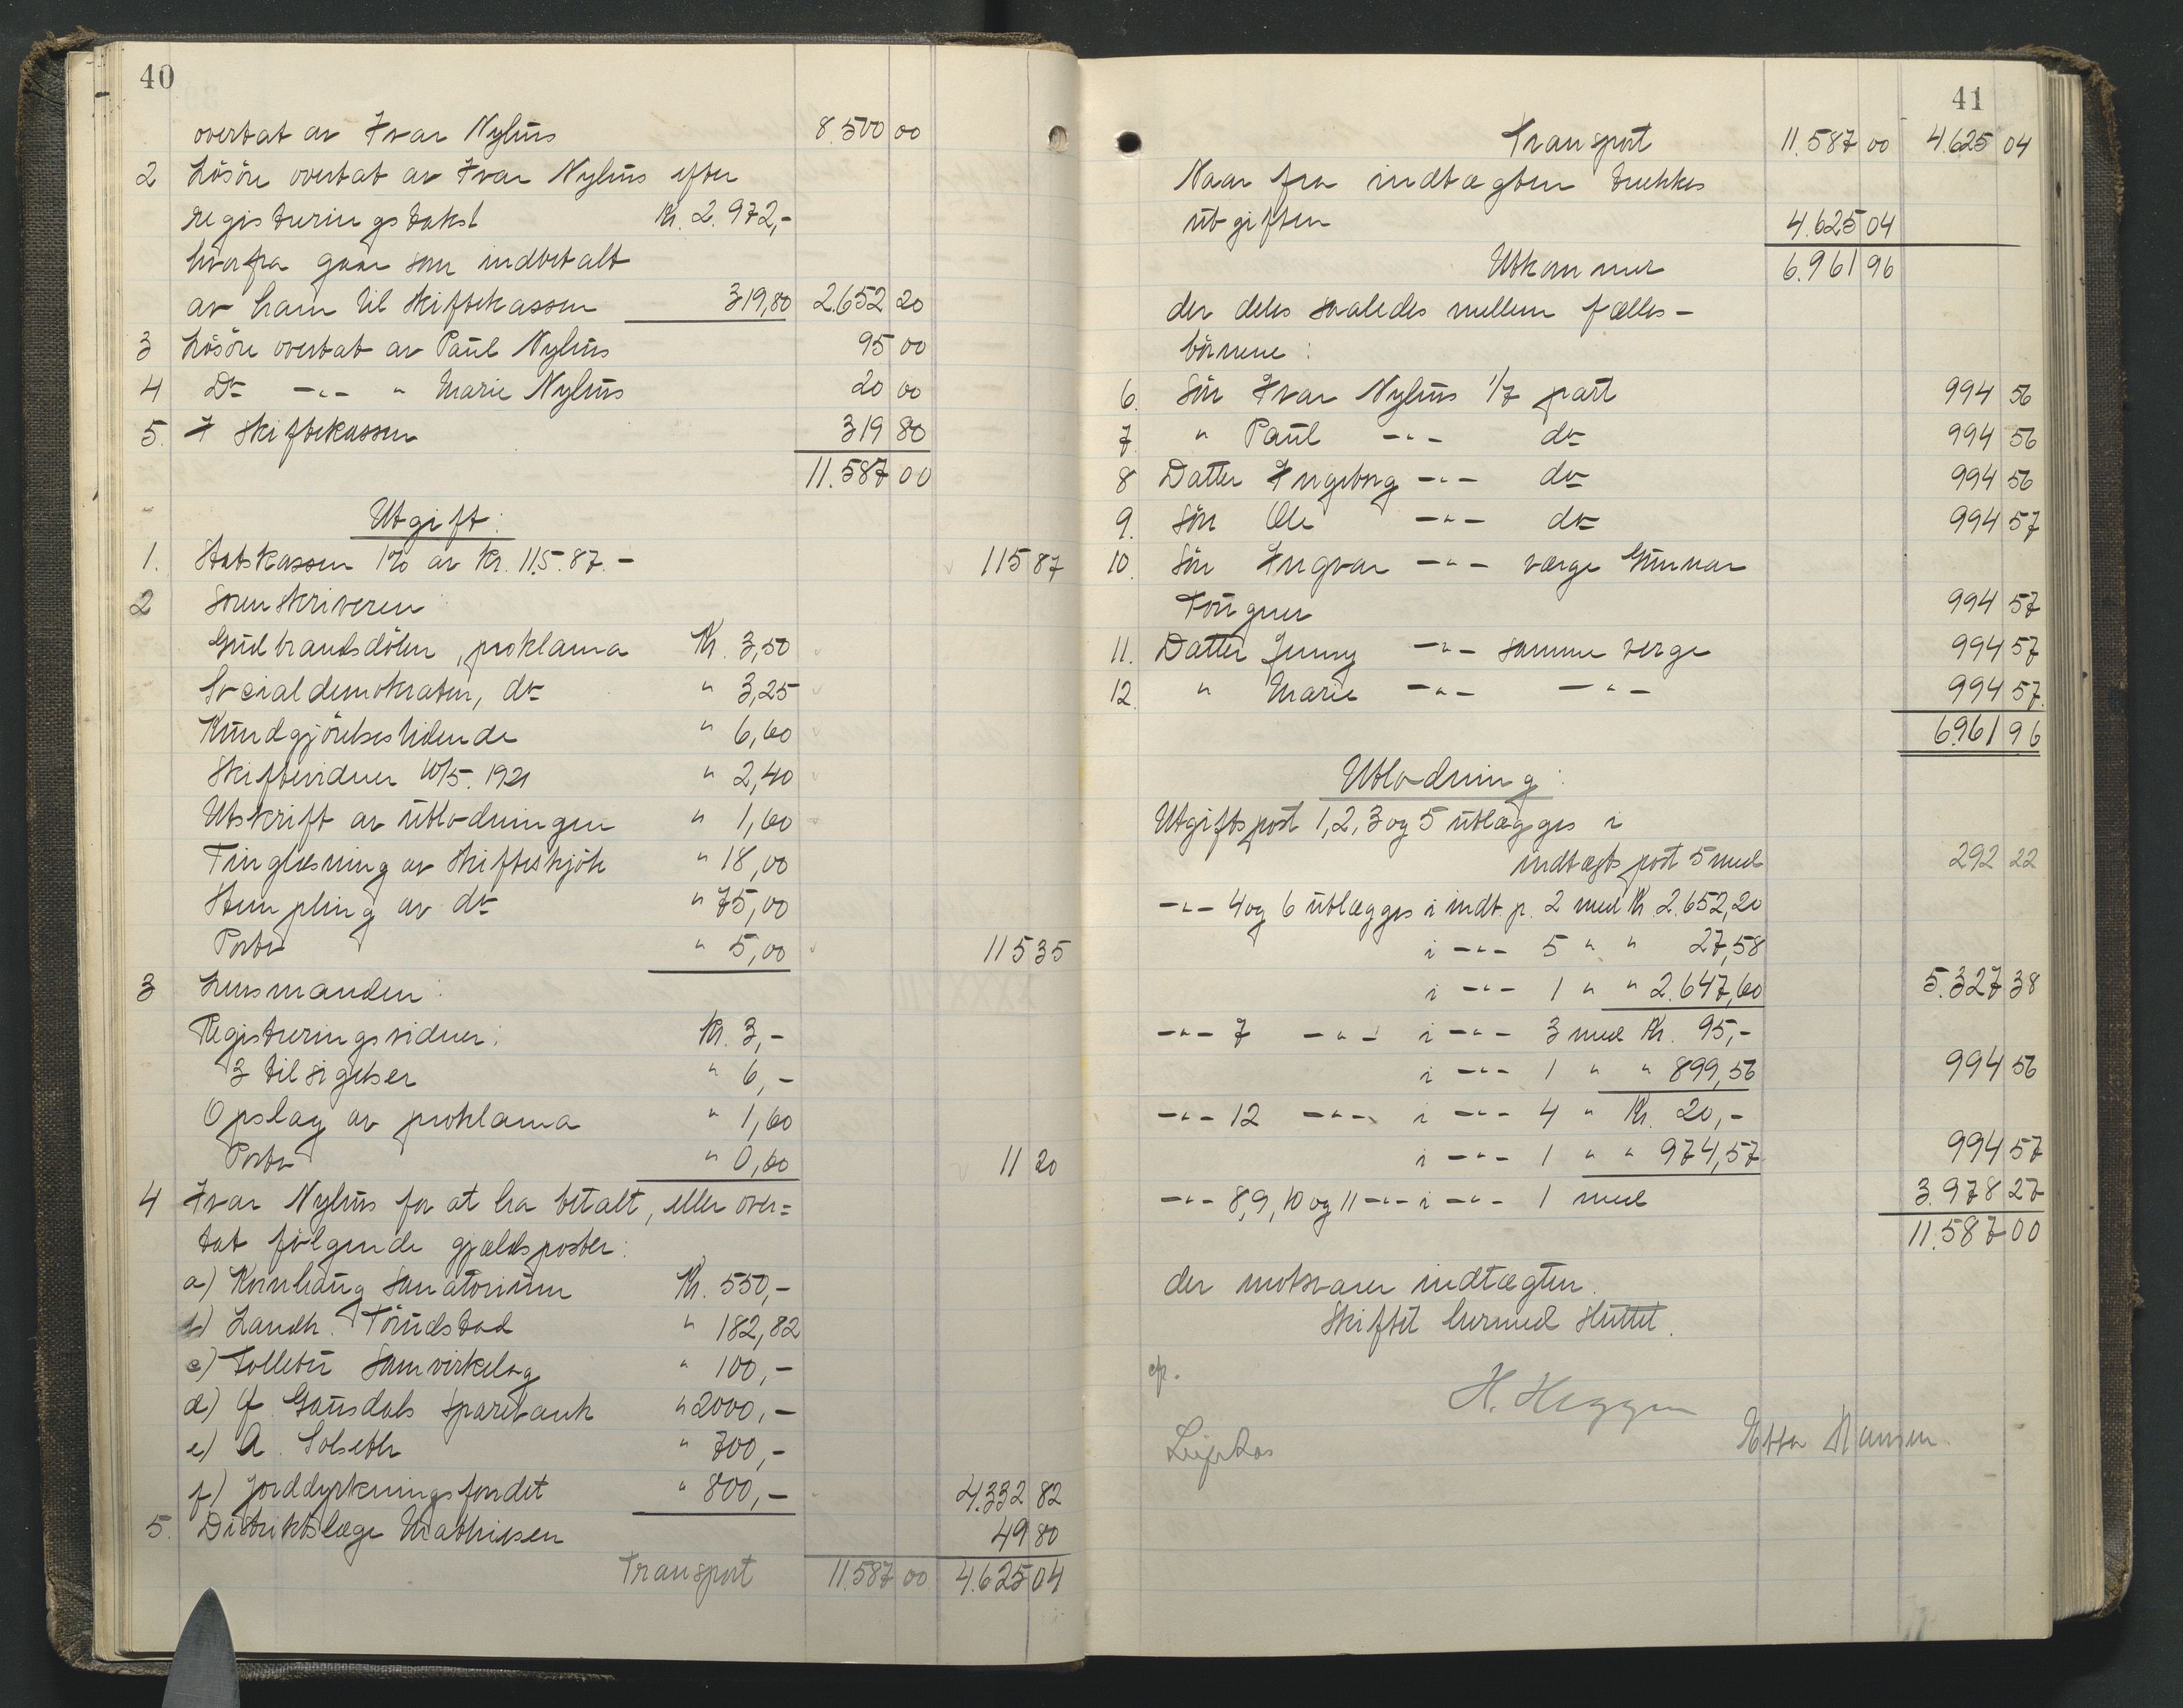 40
overtat av Ivar Nyhus 8.500 00
2 Lösöre overtat av Ivar Nyhus efter
registreringstakst Kr. 2.972,-
hvorfra gaar som indbetalt
av ham til skiftekassen 319,80 2.652 20
3 Lösöre overtat av Paul Nyhus 95 00
4 Do -"- " Marie Nyhus 20 00
5. I skiftekassen 319 80
11.587 00
Utgift:
1. Statskassen 1% av Kr. 115.87.- 115 87
2 Sorenskriveren:
Gudbrandsdölen, proklama Kr. 3,50
Socialdemokraten, do " 3,25
Kundgjörelsestidende " 6,60
Skiftevidner 10/5. 1921 " 2,40
Utskrift av utlodningen " 1,60
Tinglæsning av skifteskjöte " 18,00
Stempling av do " 75,00
Porto " 5,00 115 35
3 Lensmanden:
Registreringsvidner: Kr. 3,-
3 tilsigelser " 6,-
Opslag av proklama " 1,60
Porto " 0,60 11 20
4 Ivar Nyhus for at ha betalt, eller over=
tat fölgende gjældsposter:
a) Kornhaug Sanatorium Kr. 550,-
b) Landh. Töüdstad " 182,82
c) Follebu Samvirkelag " 100,-
d) Ø. Gausdals Sparebank " 2000,-
e) A. Solseth " 700,-
f) Jorddyrkningsfondet " 800,- 4.332 82
5. Distriktslæge Mathiesen 49 80
Transport 11.587 00 4.625 04
41
Transport 11.587 00 4.625 04
Naar fra indtægten trækkes
utgiften 4.625 04
Utkommer 6.961 96
der deles saaledes mellem fælles-
börnene:
6. Sön Ivar Nyhus 1/7 part 994 56
7 " Paul -"- do 994 56
8 Datter Ingeborg -"- do 994 56
9. Sön Ole -"- do 994 57
10. Sön Ingvar -"- værge Gunnar
Tougner 994 57
11. Datter Jenny -"- samme verge 994 57
12. " Marie -"- -"- 994 57.
6.961 96
Utlodning:
Utgiftspost 1, 2, 3 og 5 utlægges i
indtægts post 5 med 292 22
-"- 4 og 6 utlægges i indt. p. 2 med Kr 2.652,20
i -"- 5 " " 27,58
i -"- 1 " " 2.647,60 5.327 38
-"- 7 -"- i -"- 3 med Kr. 95,-
i -"- 1 " " 899,56 994 56
-"- 12 -"- i -"- 4 " Kr. 20,-
i -"- 1 " " 974,57 994 57
-"- 8, 9, 10 og 11 -"- i -"- 1 med 3.978 27
11.587 00
der motsvarer indtægten.
Skiftet hermed sluttet.
H. Heggen
Hansen.